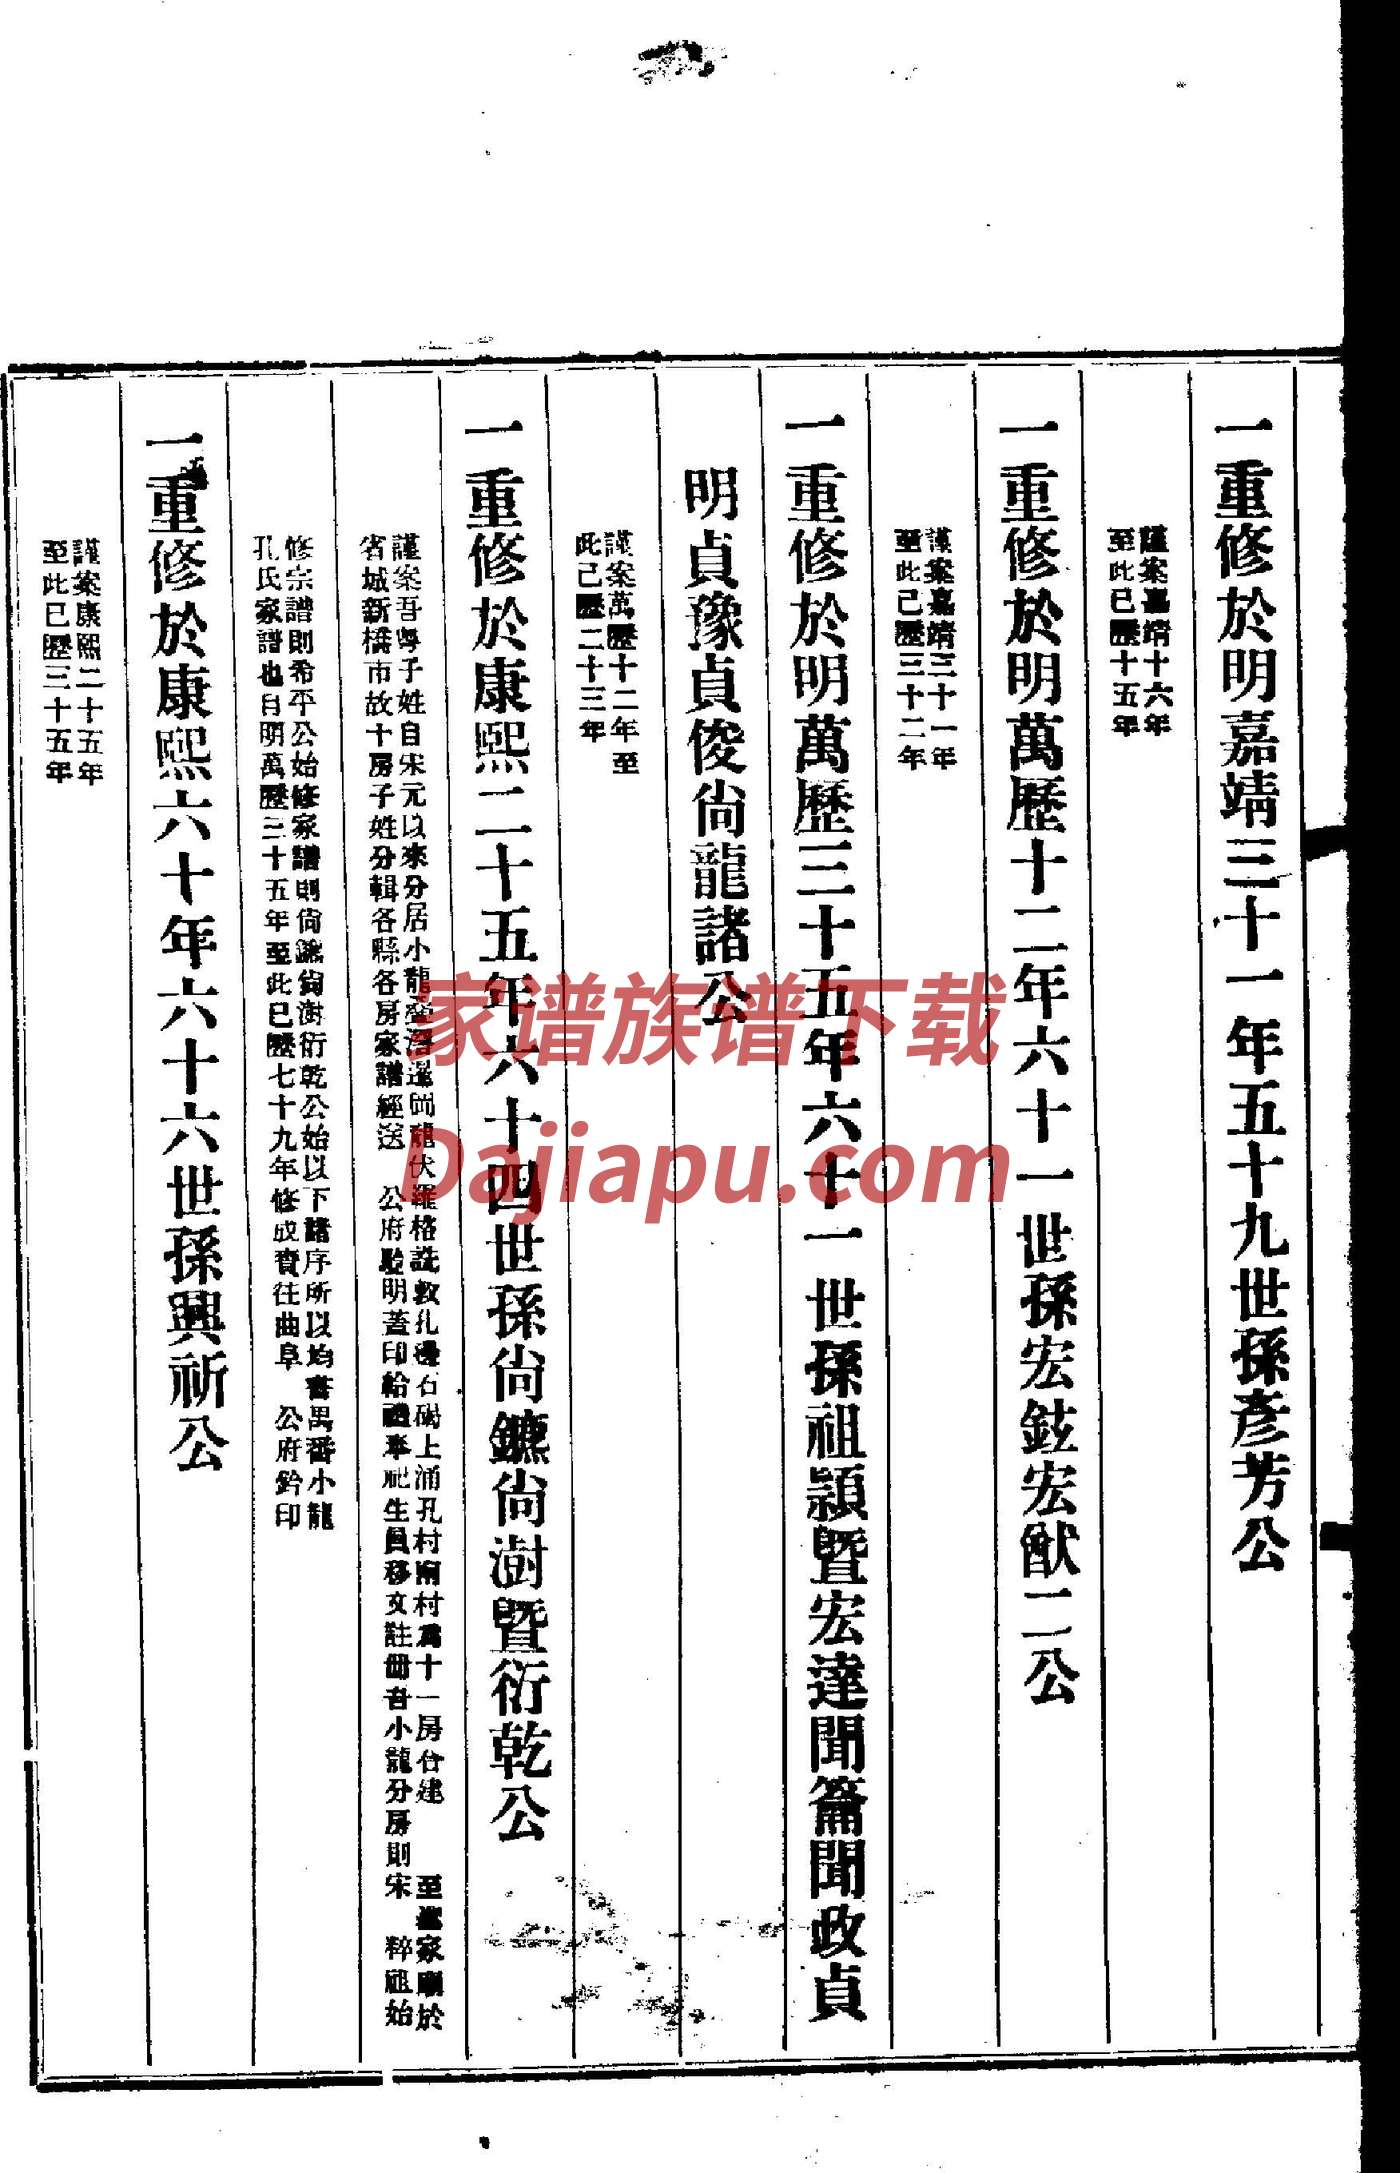 一重修於明嘉靖三十一年五十九世孫彥芳公
謹案嘉靖十六年
至此已歷十五年
一重修於明萬歷十二年六十一世孫宏鉉宏猷二公
謹案嘉靖三十一年
至此已歷三十二年
一重修於明萬歷三十五年六十一世孫祖穎暨宏達聞籥聞政貞
明貞豫貞俊尙龍諸公
謹案萬歷十二年至
此已歷二十三年
一重修於康熙二十五年六十四世孫尙鑣尙澍暨衍乾公
謹案吾粵子姓自宋元以來分居小龍疊滘暹岡龍伏羅格詵敦孔邊石碣上涌孔村南村爲十一房合建 至聖家廟於
省城新橋市故十房子姓分輯各縣各房家譜經送 公府驗明蓋印給禮奉祀生員移文註冊吾小龍分房則宋 粹祖始
修宗譜則希平公始修家譜則尙鑣尙澍衍乾公始以下諸序所以均書禺番小龍
孔氏家譜也自明萬歷三十五年至此已歷七十九年修成賫往曲阜 公府鈐印
一重修於康熙六十年六十六世孫興祈公
謹案康熙二十五年
至此已歷三十五年
家谱族谱下载
Dajiapu.com